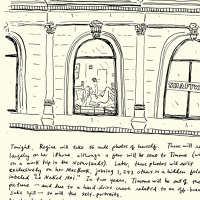 SCHAFTTER
Tonight, Regina will take 56 nude photos of herself. These will re
largely on her iPhone, although a few will be sent to Timone (wh
on a work trip in the Netherlands). Later, these photos will exist
exclusively on her MacBook, joining 1,243 others in a hidden folde
labeled "La Naked Moi." In two years, Timone will be out of the
picture — and due to a hard drive crash related to an off-bran
Sake spill — so will the self-portraits.